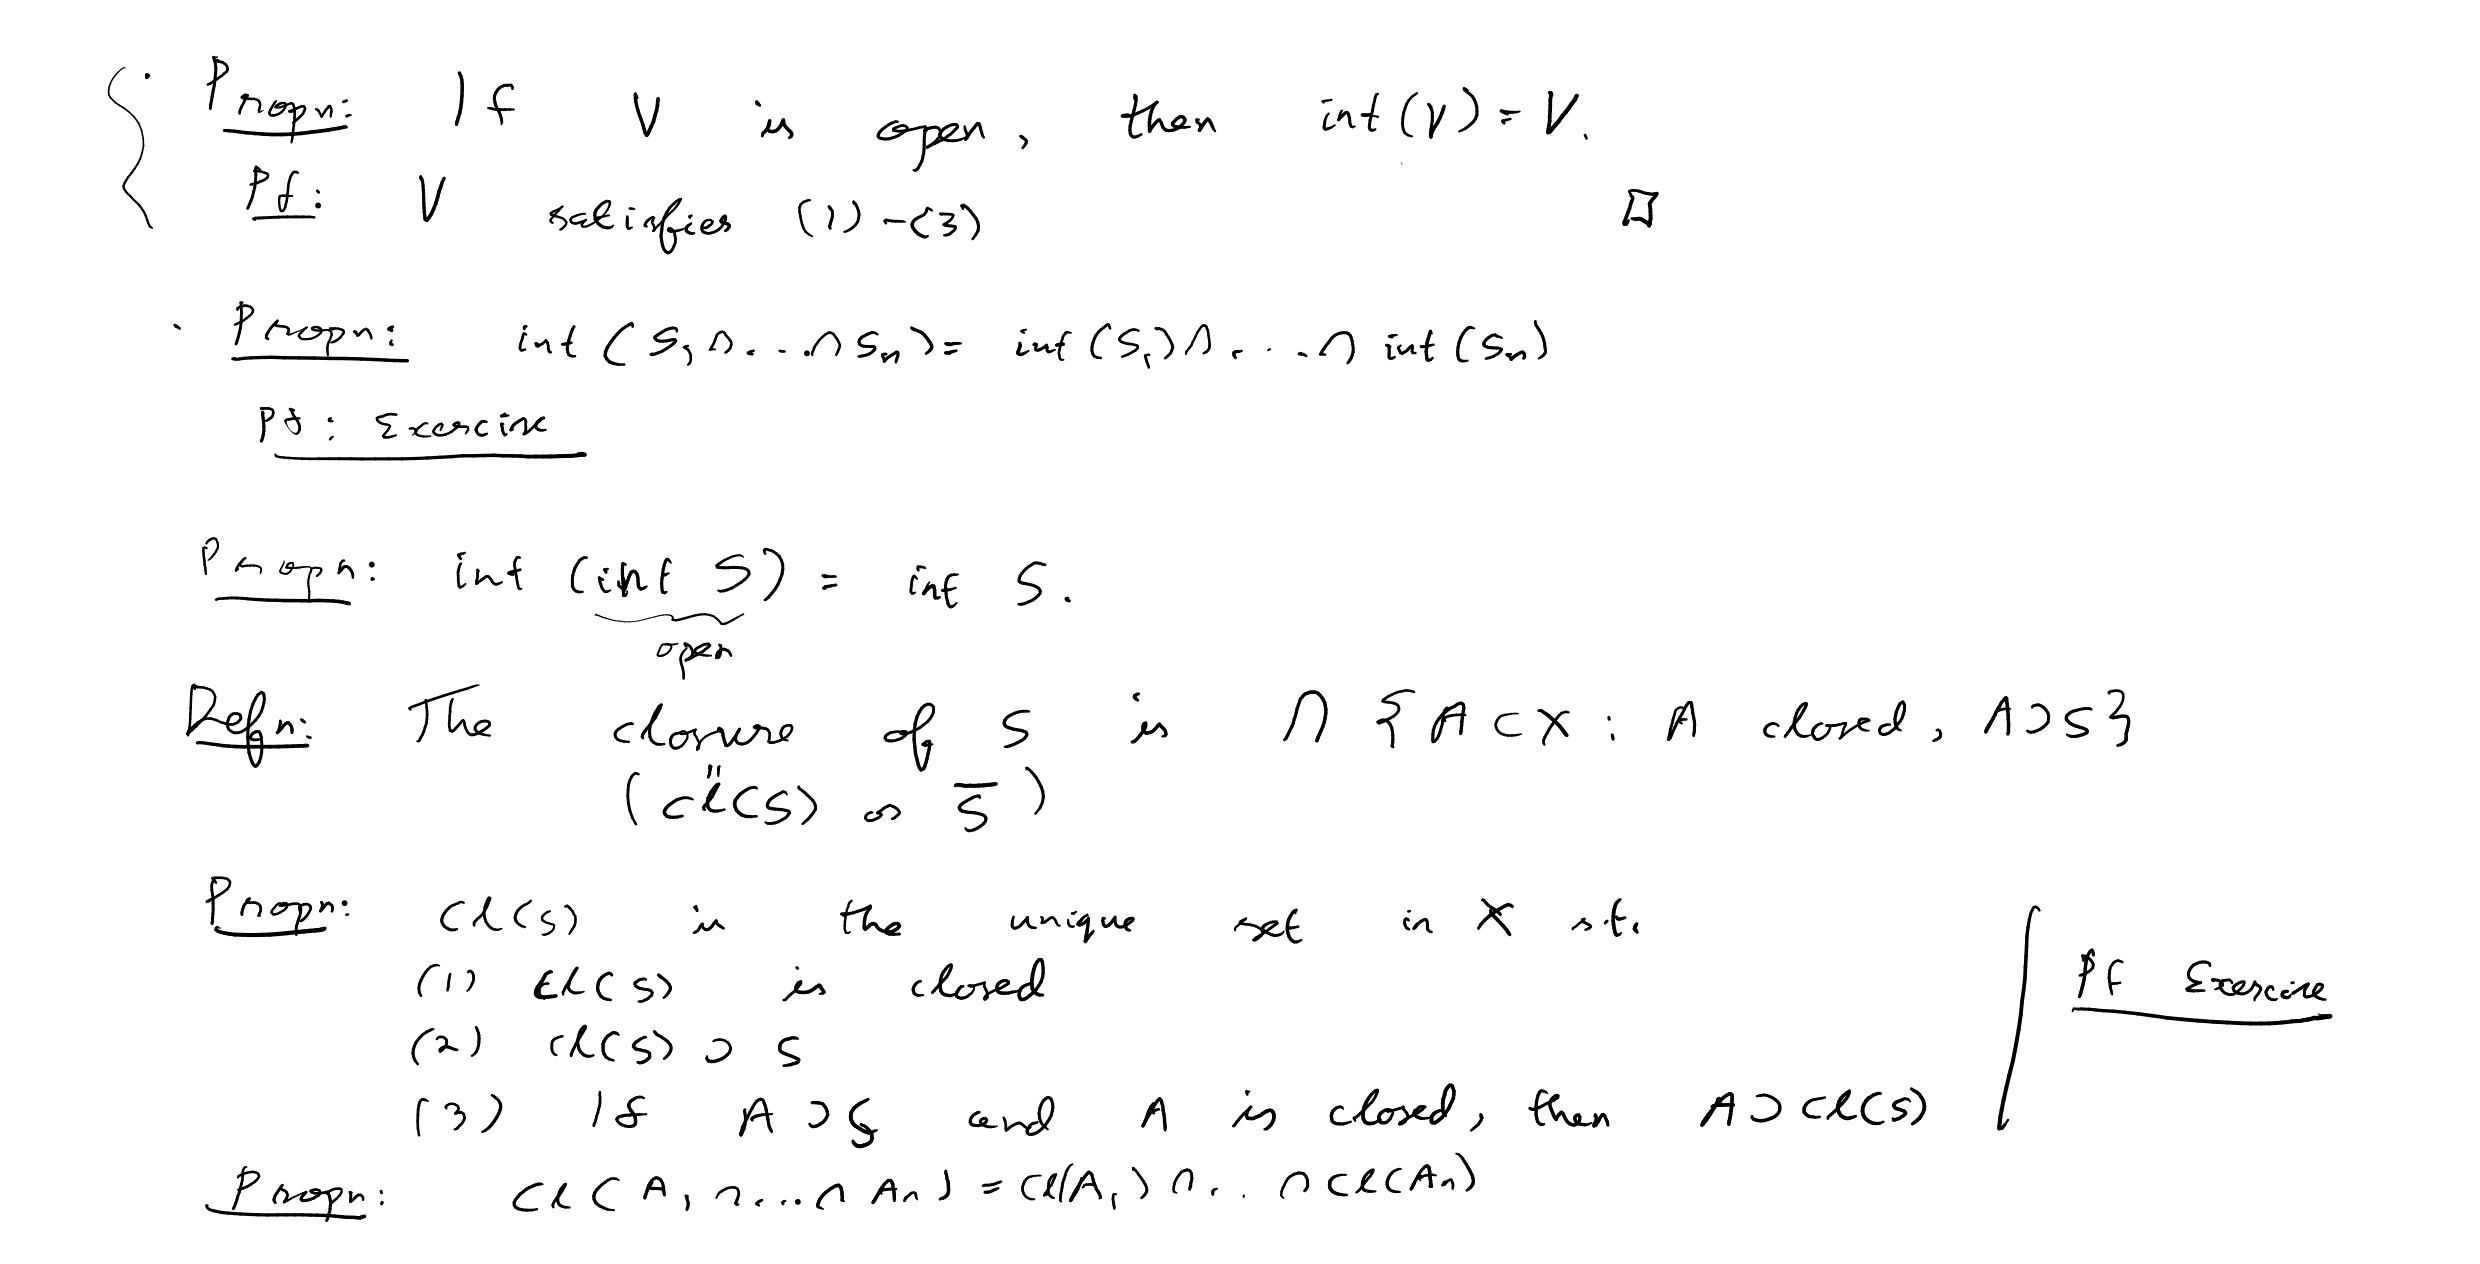 Propn: If V is open, then int (V) = V.
Pf: V satisfies (1) - (3) □
Propn: int (S₁ ∩ . . . ∩ Sₙ) = int (S₁) ∩ . . . ∩ int (Sₙ)
Pf: Exercise
Propn: int (int S) = int S.
open
Defn: The closure of S is ∩ { A ⊂ X : A closed, A ⊃ S }
(cl(S) or S̅)
Propn: cl(S) is the unique set in X s.t.
(1) cl(S) is closed
Pf Exercise
(2) cl(S) ⊃ S
(3) If A ⊃ S and A is closed, then A ⊃ cl(S)
Propn: cl(A₁ ∩ . . . ∩ Aₙ) = cl(A₁) ∩ . . ∩ cl(Aₙ)